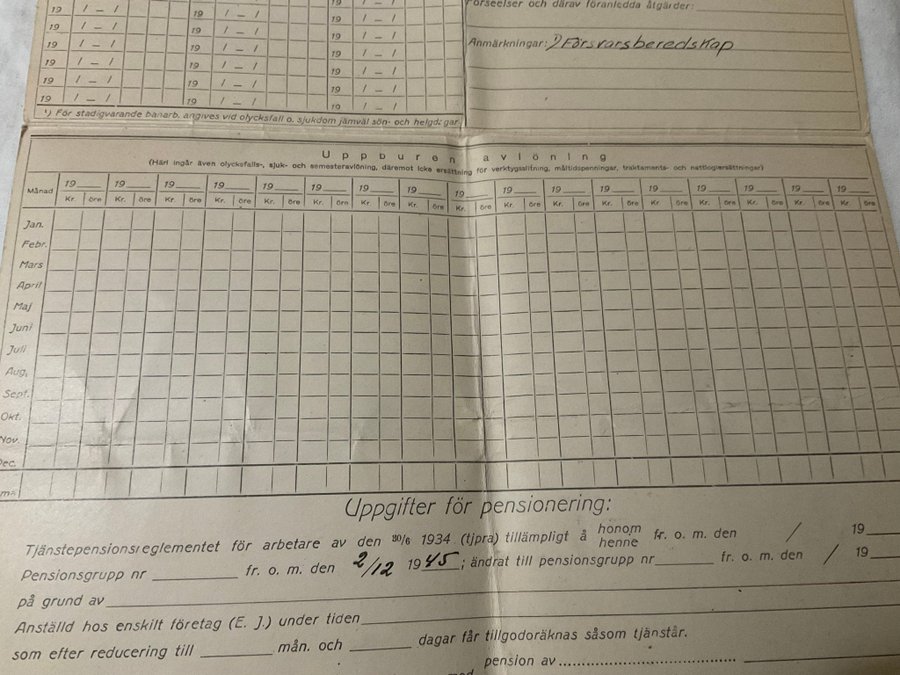 19 / – / 19 / – / 19 / – /
19 / – / 19 / – / 19 / – /
19 / – / 19 / – / 19 / – /
19 / – / 19 / – / 19 / – /
19 / – / 19 / – / 19 / – /
¹) För stadigvarande banarb. angives vid olycksfall o. sjukdom jämväl sön- och helgdagar.
Förseelser och därav föranledda åtgärder:
Anmärkningar: 2) Försvarsberedskap
Uppburen avlöning
(Häri ingår även olycksfalls-, sjuk- och semesteravlöning, däremot icke ersättning för verktygsslitning, måltidspenningar, traktaments- och nattlogiersättningar)
Månad 19 19 19 19 19 19 19 19 19 19 19 19 19 19 19 19 19
Kr. öre Kr. öre Kr. öre Kr. öre Kr. öre Kr. öre Kr. öre Kr. öre Kr. öre Kr. öre Kr. öre Kr. öre Kr. öre Kr. öre Kr. öre Kr. öre Kr. öre
Jan.
Febr.
Mars
April
Maj
Juni
Juli
Aug.
Sept.
Okt.
Nov.
Dec.
Uppgifter för pensionering:
Tjänstepensionsreglementet för arbetare av den 30/6 1934 (tjpra) tillämpligt å honom henne fr. o. m. den / 19
Pensionsgrupp nr fr. o. m. den 2/12 1945; ändrat till pensionsgrupp nr fr. o. m. den / 19
på grund av
Anställd hos enskilt företag (E. J.) under tiden
som efter reducering till mån. och dagar får tillgodoräknas såsom tjänstår.
pension av